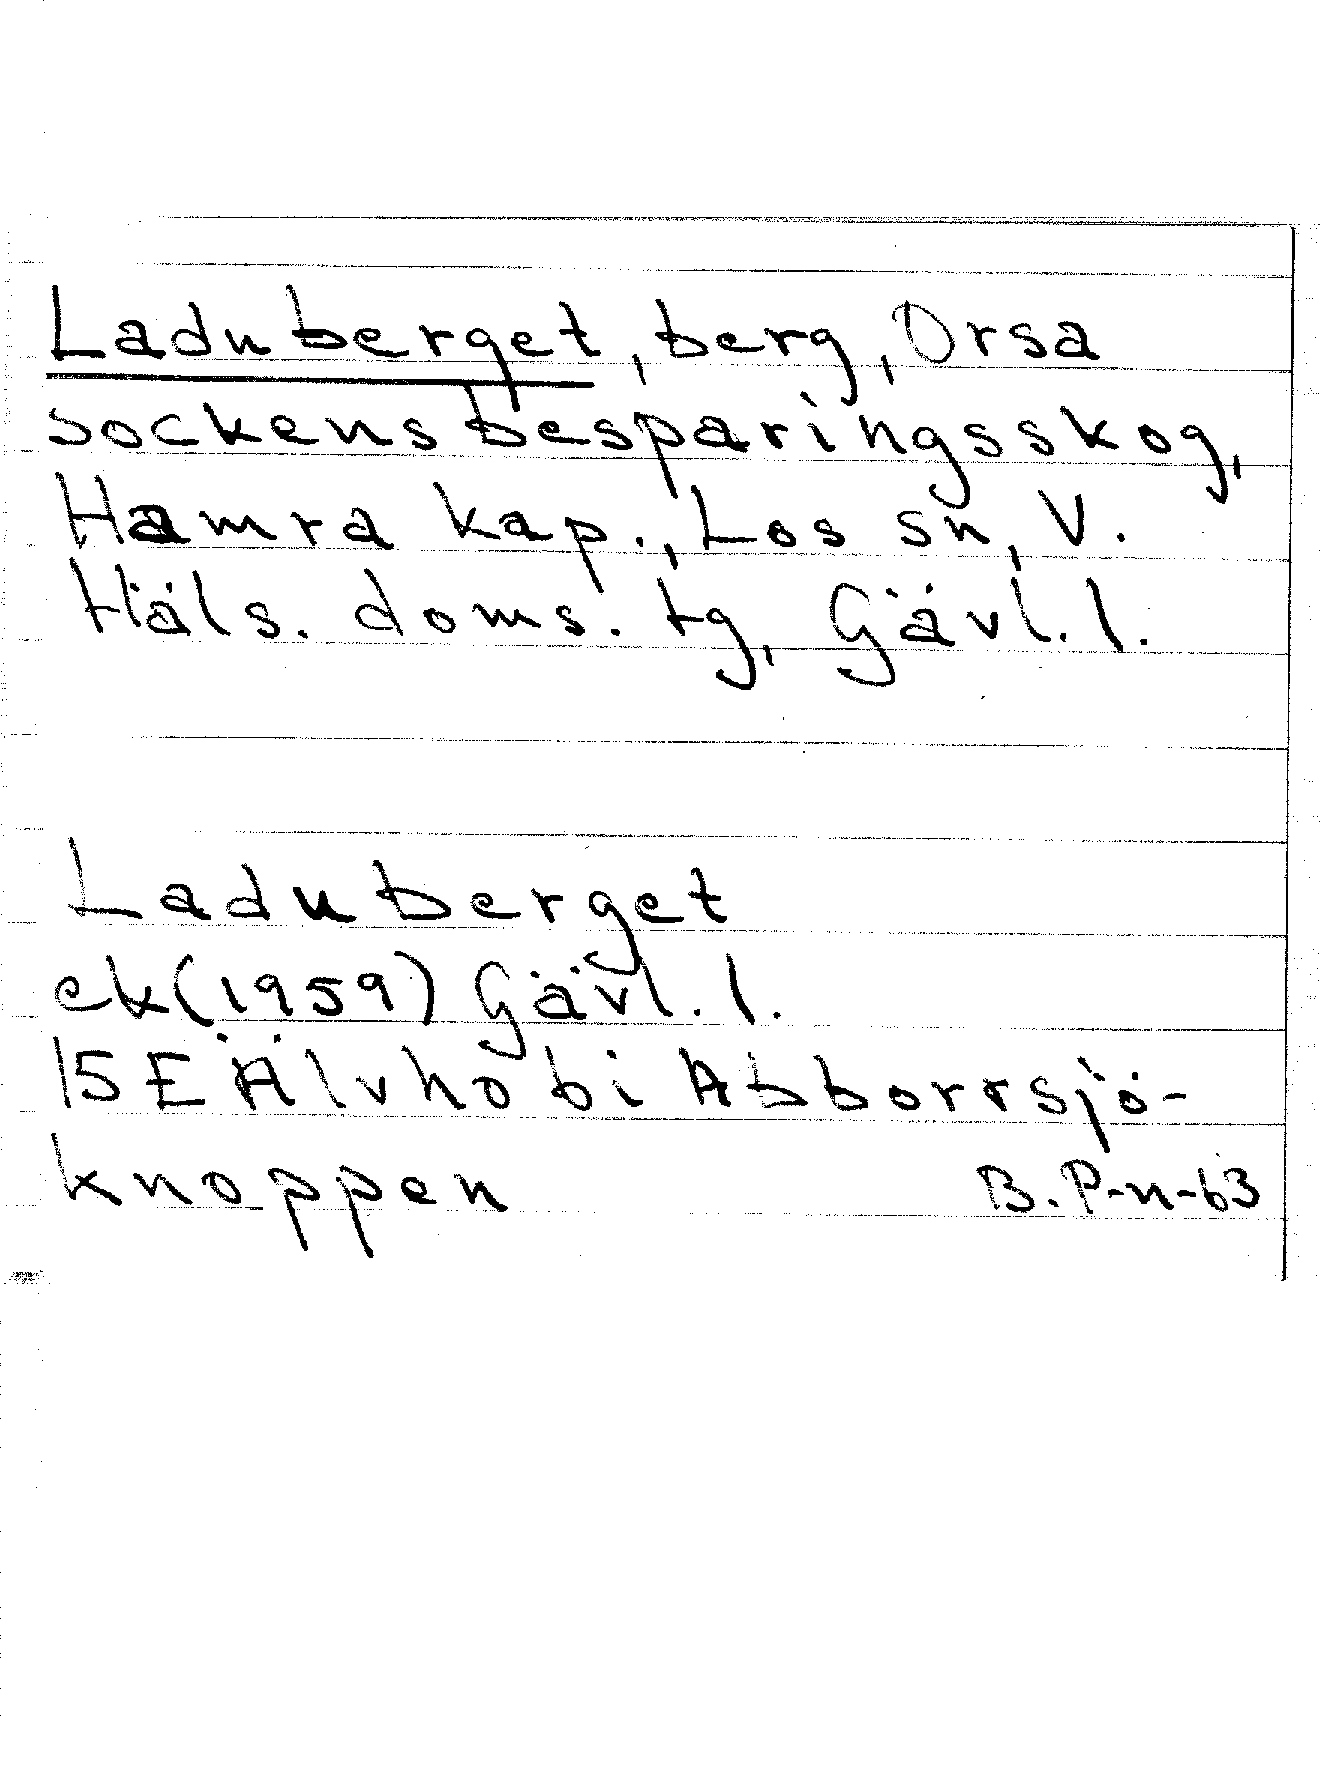 Laduberget, berg, Orsa
sockens besparingsskog,
Hamra kap., Los sn, V.
Häls. doms. tg, Gävl. l.
Laduberget
ek (1959) Gävl. l.
15E Älvho bi Abborrsjö-
knoppen B. P-n-63